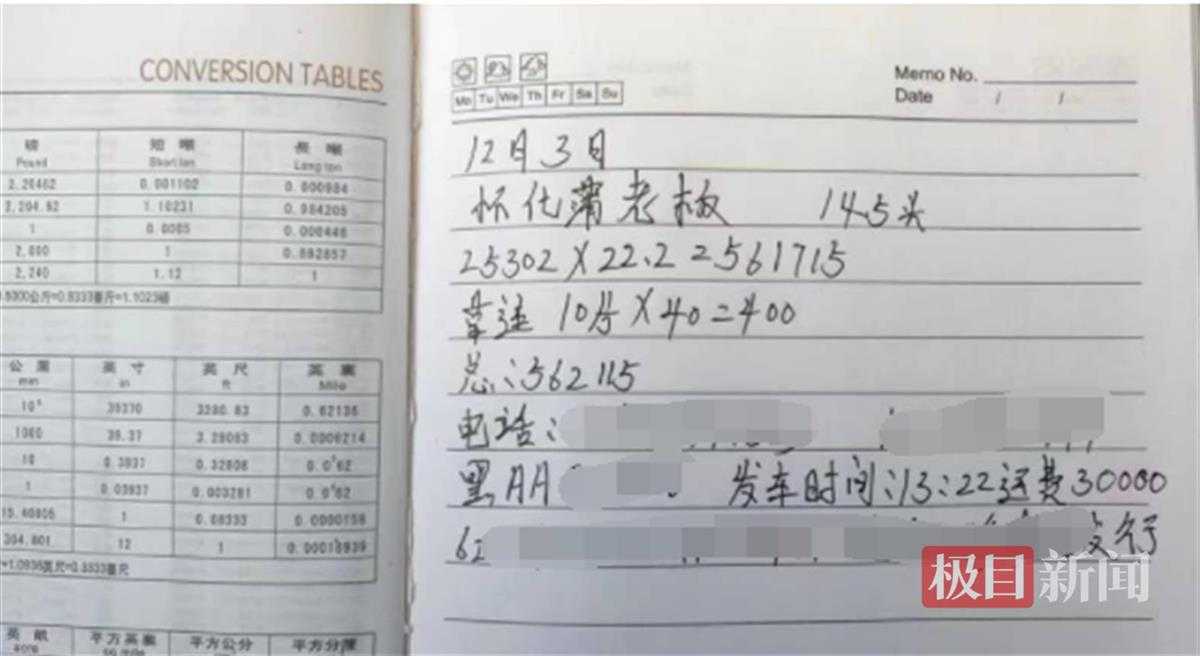 CONVERSION TABLES
磅 短嘴 長嘴
Pound Short ton Long ton
2.20462 0.001102 0.000984
2,204.62 1.10231 0.984205
1 0.0005 0.000446
2,000 1 0.892857
2,240 1.12 1
公厘 英寸 英尺 英里
mm in ft Mile
39370 3280.83 0.62136
1000 39.37 3.28083 0.0006214
10 0.3937 0.32808
1 0.03937 0.003281
1 0.08333 0.0000158
304.801 12 1
平方公分
Mo Tu We Th Fr Sa Su
Memo No.
Date / /
12月3日
怀化蒲老板 145头
25302×22.2=561715
10片×40=400
总:562115
电话:
黑AA 发车时间:13:22运费30000
62
极目新闻